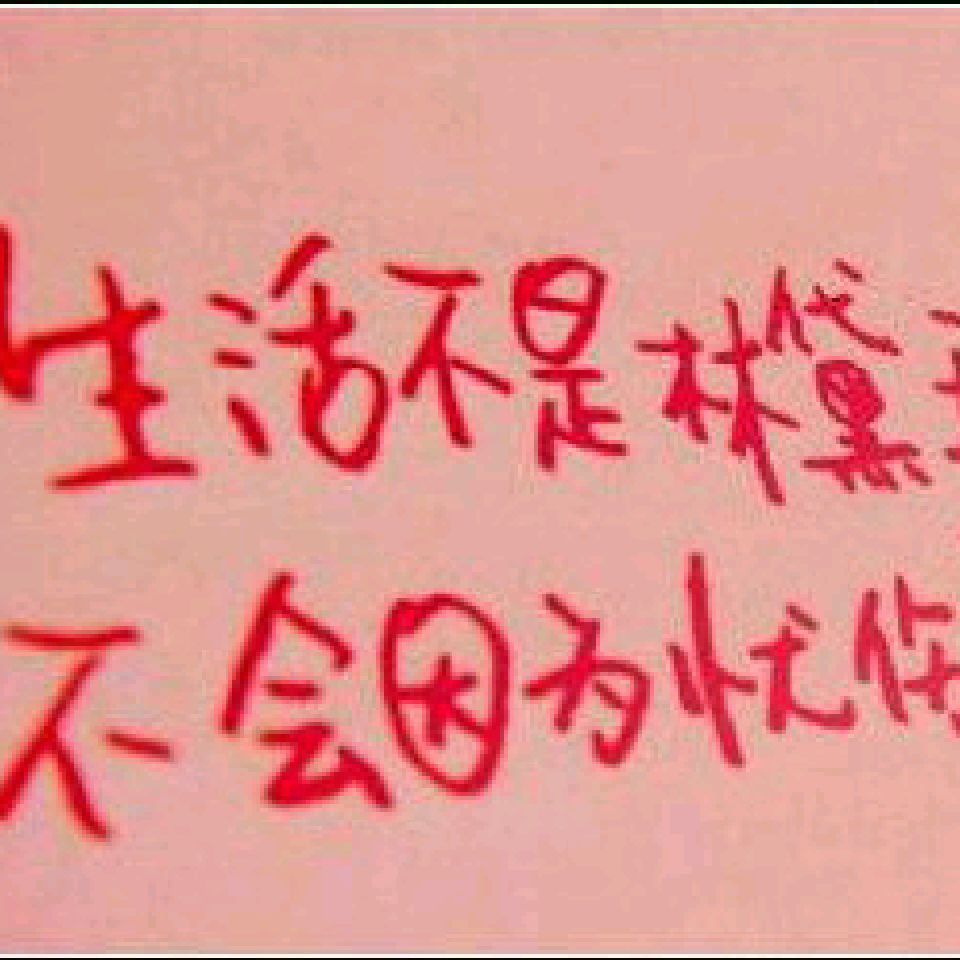 生活不是林黛
不会因为忧伤